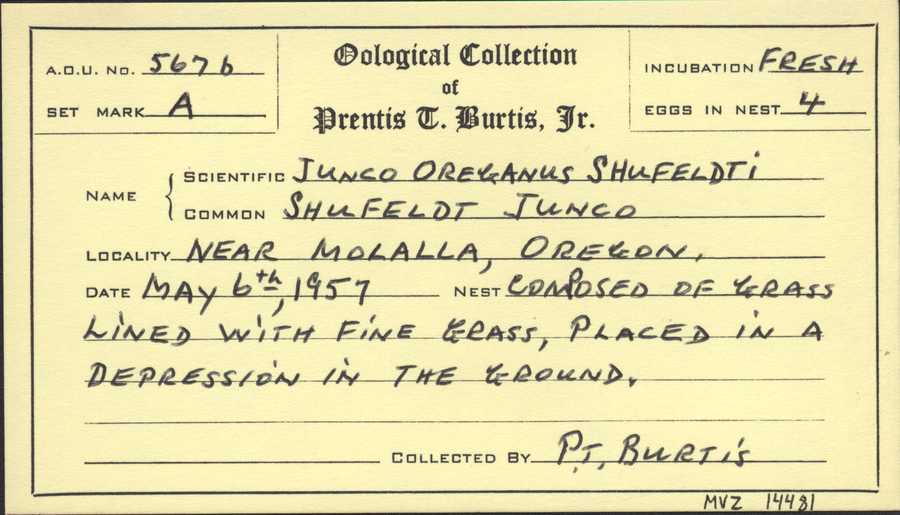 Oological Collection
of
Prentis T. Burtis, Jr.
A.O.U. No. 567b
SET MARK A
INCUBATION FRESH
EGGS IN NEST 4
NAME { SCIENTIFIC JUNCO OREGANUS SHUFELDTI
COMMON SHUFELDT JUNCO
LOCALITY NEAR MOLALLA, OREGON.
DATE MAY 6th, 1957 NEST COMPOSED OF GRASS
LINED WITH FINE GRASS, PLACED IN A
DEPRESSION IN THE GROUND.
COLLECTED BY P.T. BURTIS
MVZ 14481